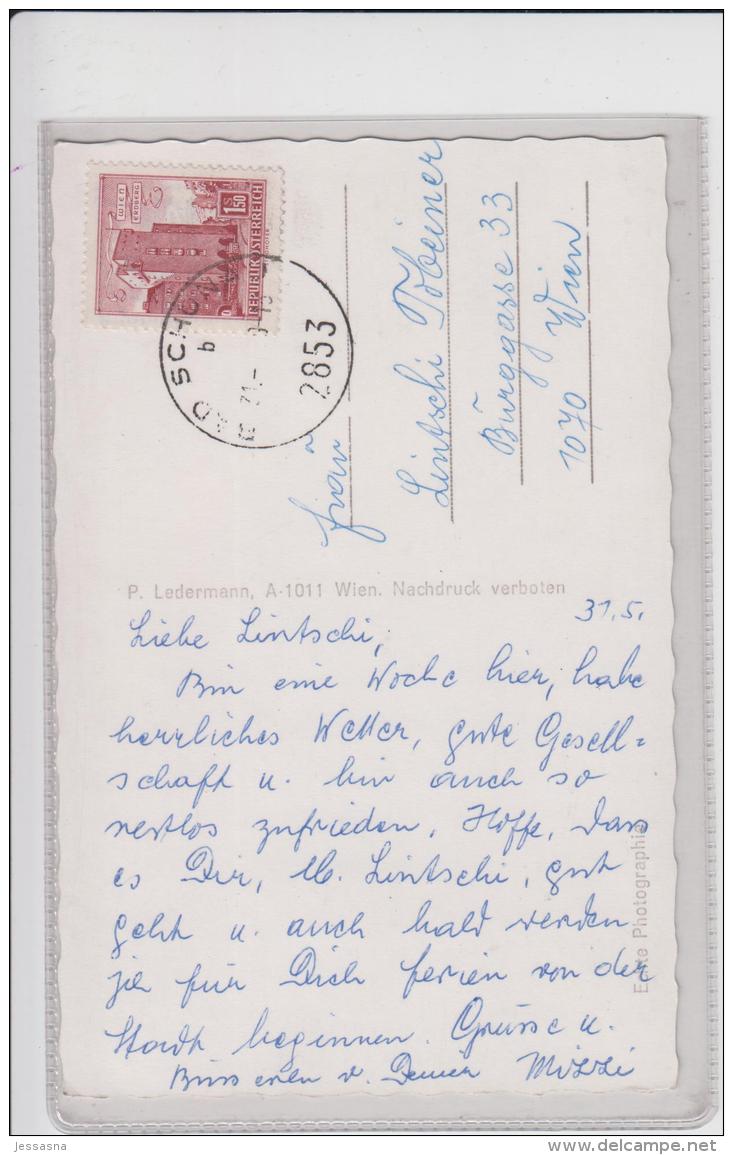 WIEN
ERDBERG
S 1.50
REPUBLIK ÖSTERREICH
BAD SCHÖNAU
b
31.-
2853
Frau
Lintschi Tobeiner
Burggasse 33
1070 Wien
P. Ledermann, A-1011 Wien. Nachdruck verboten
31.5.
Liebe Lintschi,
Bin eine Woche hier, habe
herrliches Wetter, gute Gesell=
schaft u. bin auch so
restlos zufrieden. Hoffe, dass
es Dir, lb. Lintschi, gut
geht u. auch bald werden
für Dich Ferien von der
Stadt beginnen. Grüsse u.
v. Deiner Mizzi
Echte Photographie
jessasna
www.delcampe.net